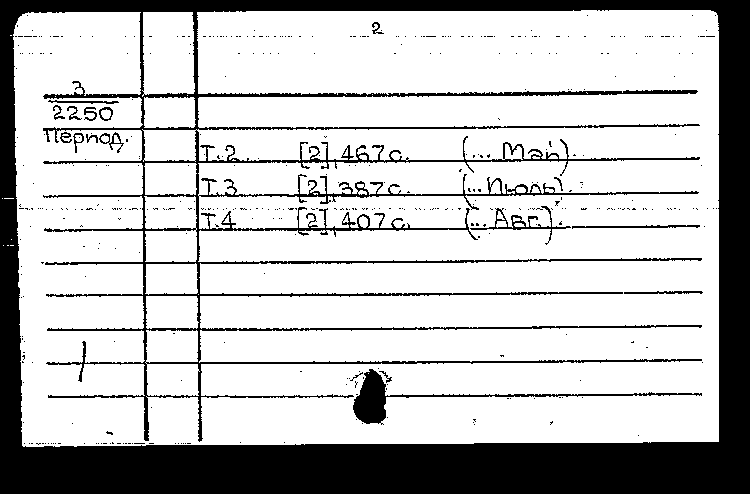 2
3
2250
Период.
Т.2 [2], 467 с. (... Май).
Т.3 [2], 387 с. (... Июль).
Т.4 [2], 407 с. (... Авг.).